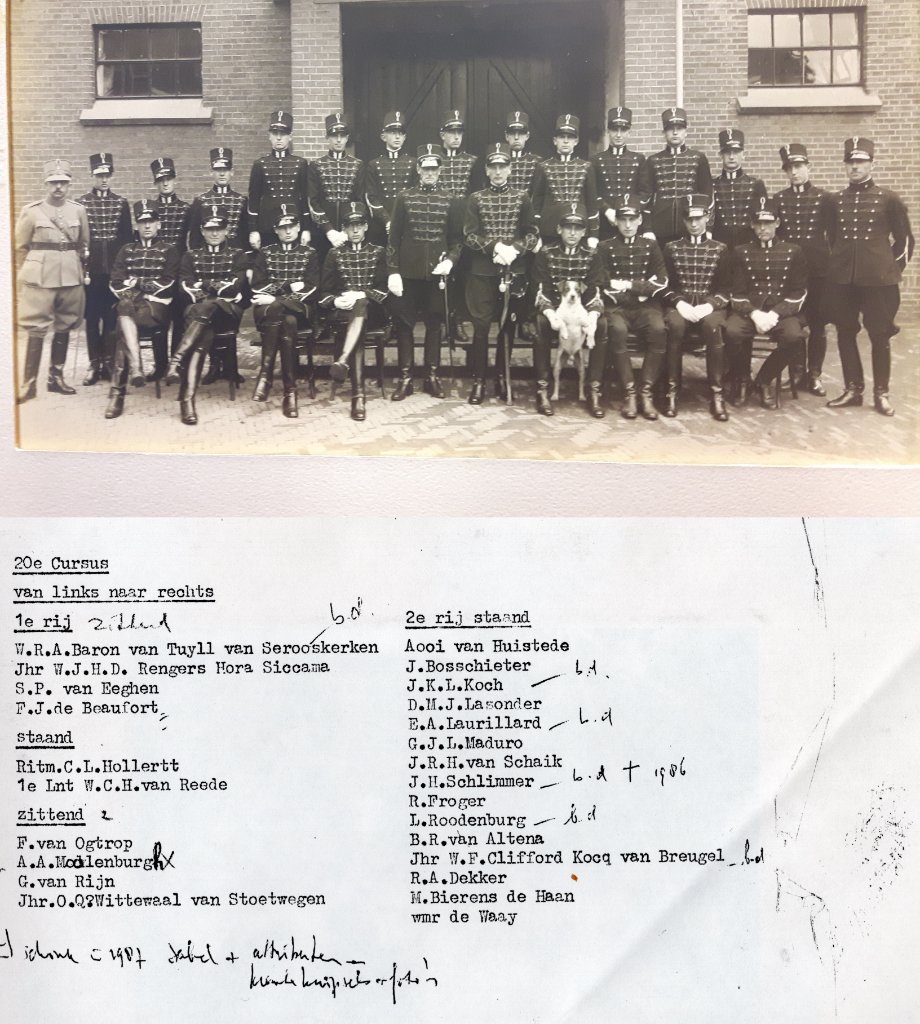 20e Cursus
van links naar rechts
1e rij zittend b.d.
W.R.A.Baron van Tuyll van Serooskerken
Jhr W.J.H.D. Rengers Hora Siccama
S.P. van Eeghen
F.J.de Beaufort
staand
Ritm.C.L.Hollertt
1e Lnt W.C.H.van Reede
zittend 2
F.van Ogtrop
A.A.Mollenburgh
G.van Rijn
Jhr.O.Q?Wittewaal van Stoetwegen
2e rij staand
Aooi van Huistede
J.Bosschieter
J.K.L.Koch b.d.
D.M.J.Lasonder
E.A.Laurillard b.d
G.J.L.Maduro
J.R.H.van Schaik
J.H.Schlimmer b.d † 1986
R.Froger
L.Roodenburg b.d
B.R.van Altena
Jhr W.F.Clifford Kocq van Breugel b.d
R.A.Dekker
M.Bierens de Haan
wmr de Waay
1987 sabel + attributen